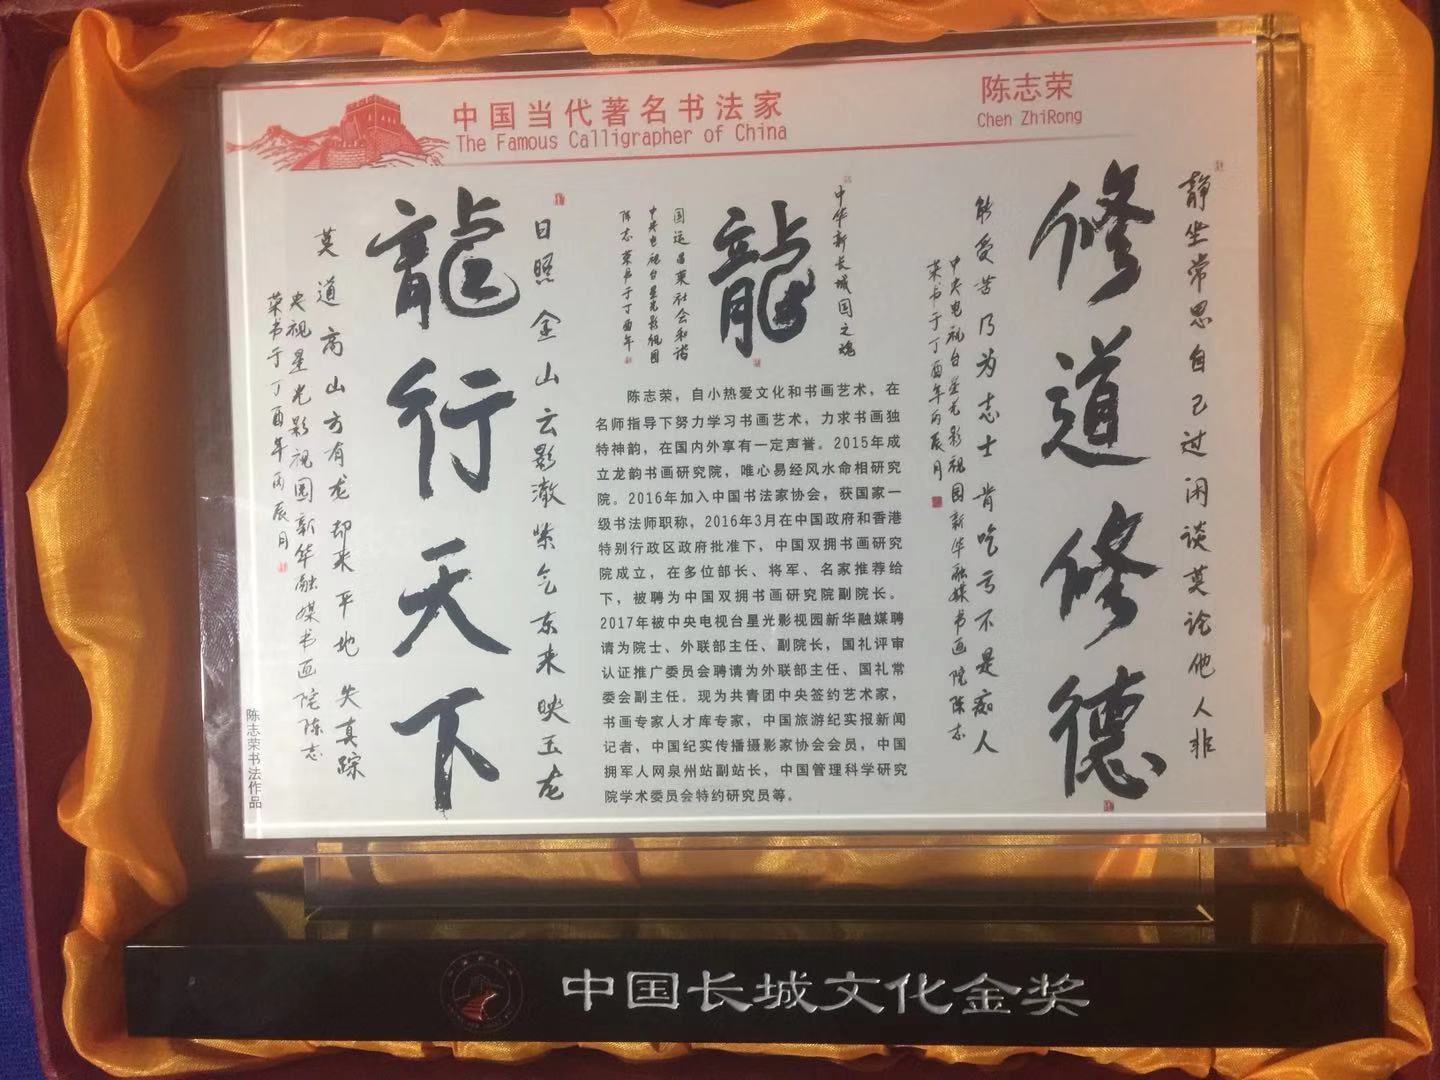 中国当代著名书法家
The Famous Calligrapher of China
陈志荣
Chen ZhiRong
静坐常思自己过闲谈莫论他人非
修道修德
能受苦乃为志士肯吃亏不是痴人
中央电视台星光影视园新华融媒书画院陈志
荣书于丁酉年丙辰月
中华新长城国之魂
龍
国运昌荣社会和谐
中央电视台星光影视园
陈志荣书于丁酉年
陈志荣，自小热爱文化和书画艺术，在
名师指导下努力学习书画艺术，力求书画独
特神韵，在国内外享有一定声誉。2015年成
立龙韵书画研究院，唯心易经风水命相研究
院。2016年加入中国书法家协会，获国家一
级书法师职称，2016年3月在中国政府和香港
特别行政区政府批准下，中国双拥书画研究
院成立，在多位部长、将军、名家推荐给
下，被聘为中国双拥书画研究院副院长。
2017年被中央电视台星光影视园新华融媒聘
请为院士、外联部主任、副院长，国礼评审
认证推广委员会聘请为外联部主任、国礼常
委会副主任。现为共青团中央签约艺术家，
书画专家人才库专家，中国旅游纪实报新闻
记者，中国纪实传播摄影家协会会员，中国
拥军人网泉州站副站长，中国管理科学研究
院学术委员会特约研究员等。
日照金山云影澈紫气东来映玉龙
龍行天下
莫道高山方有龙却来平地失真踪
央视星光影视园新华融媒书画院陈志
荣书于丁酉年丙辰月
陈志荣书法作品
中国长城文化金奖